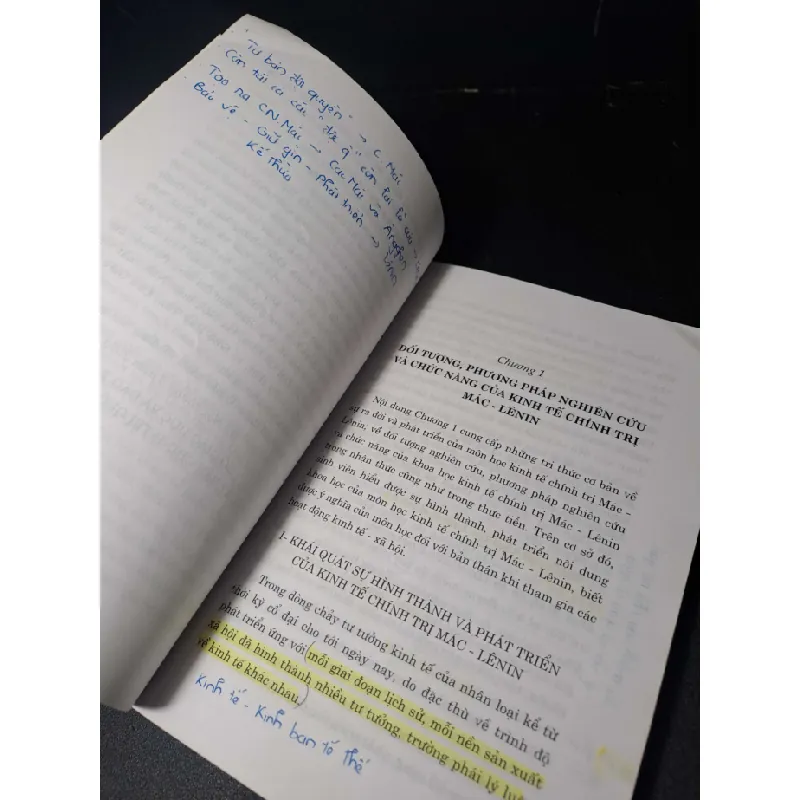 "Tư bản độc quyền" → C. Mác
Còn
Tạo ra CN. Mác → Các Mác và
Bảo vệ - Giữ gìn - Phát triển →
Kế thừa
Chương 1
ĐỐI TƯỢNG, PHƯƠNG PHÁP NGHIÊN CỨU
VÀ CHỨC NĂNG CỦA KINH TẾ CHÍNH TRỊ
MÁC - LÊNIN
Nội dung Chương 1 cung cấp những tri thức cơ bản về
sự ra đời và phát triển của môn học kinh tế chính trị Mác -
Lênin, về đối tượng nghiên cứu, phương pháp nghiên cứu
và chức năng của khoa học kinh tế chính trị Mác - Lênin
trong nhận thức cũng như trong thực tiễn. Trên cơ sở đó,
sinh viên hiểu được sự hình thành, phát triển nội dung
khoa học của môn học kinh tế chính trị Mác - Lênin, biết
được ý nghĩa của môn học đối với bản thân khi tham gia các
hoạt động kinh tế - xã hội.
I- KHÁI QUÁT SỰ HÌNH THÀNH VÀ PHÁT TRIỂN
CỦA KINH TẾ CHÍNH TRỊ MÁC - LÊNIN
Trong dòng chảy tư tưởng kinh tế của nhân loại kể từ
thời kỳ cổ đại cho tới ngày nay, do đặc thù về trình độ
phát triển ứng với mỗi giai đoạn lịch sử, mỗi nền sản xuất
xã hội đã hình thành nhiều tư tưởng, trường phái lý luận
về kinh tế khác nhau.
Kinh tế - Kinh bang tế thế